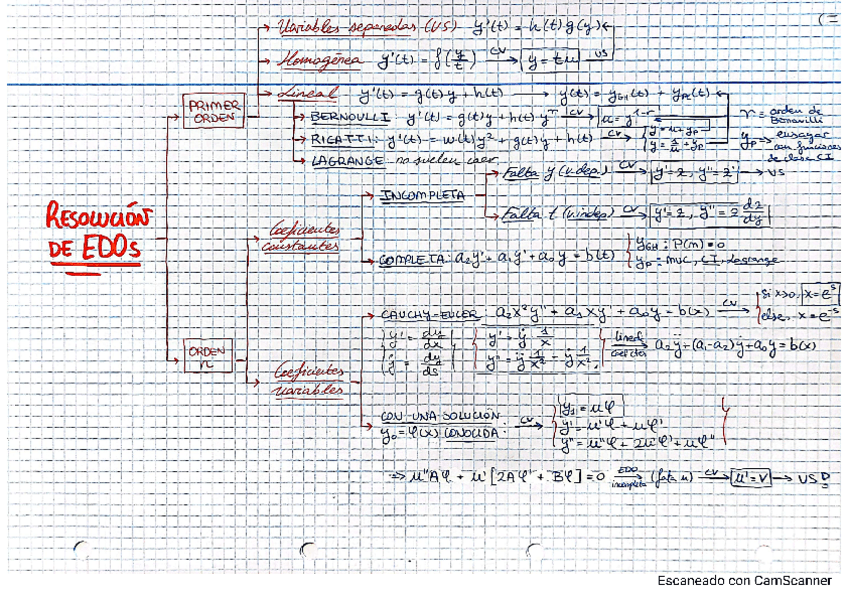 Variables separadas (VS) y'(t) = h(t)g(y)
Homogénea y'(t) = f(y/t) CV → y = tu VS
Lineal y'(t) = g(t)y + h(t) → y(t) = y_GH(t) + y_PC(t)
PRIMER ORDEN
BERNOULLI: y'(t) = g(t)y + h(t) y^r CV → u = y^(1-r)
r = orden de Bernoulli
RICATTI: y'(t) = w(t)y² + g(t)y + h(t) CV → y = u + y_P
y = 1/u + y_P
y_P → ensayar con funciones de clase CI
LAGRANGE no suelen caer
RESOLUCIÓN DE EDOs
Coeficientes constantes
INCOMPLETA
Falta y (v.dep.) CV → y' = z, y'' = z' → VS
Falta t (v.indep) CV → y' = z, y'' = z dz/dy
COMPLETA: a₂y'' + a₁y' + a₀y = b(t)
y_GH: P(m) = 0
y_P = MVC, CI, Lagrange
ORDEN n
Coeficientes variables
CAUCHY-EULER: a₂x²y'' + a₁xy' + a₀y = b(x) CV →
Si x>0, x = e^s
else, x = e^-s
y' = dy/dx
ẏ = dy/ds
y' = ẏ 1/x
y'' = ÿ 1/x² - ẏ 1/x²
lineal → a₂ÿ + (a₁-a₂)ẏ + a₀y = b(x)
CON UNA SOLUCIÓN
y₀ = φ(x) CONOCIDA: CV →
y₁ = uφ
y' = u'φ + uφ'
y'' = u''φ + 2u'φ' + uφ''
⇒ u''Aφ + u'[2Aφ' + Bφ] = 0 EDO incompleta → (falta u) CV → u' = v → VS
Escaneado con CamScanner